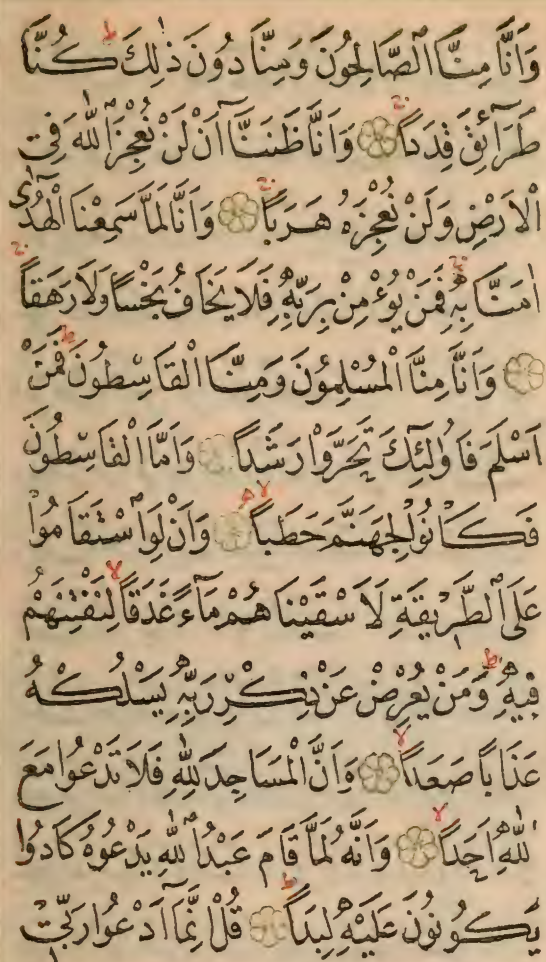 وَاَنَّا مِنَّا الصَّالِحُونَ وَمِنَّا دُونَ ذٰلِكَ كُنَّا
طَرَآئِقَ قِدَدًا وَاَنَّا ظَنَنَّا اَنْ لَنْ نُعْجِزَ اللّٰهَ فِى
الْاَرْضِ وَلَنْ نُعْجِزَهُ هَرَبًا وَاَنَّا لَمَّا سَمِعْنَا الْهُدٰى
اٰمَنَّا بِهِ فَمَنْ يُؤْمِنْ بِرَبِّهِ فَلَا يَخَافُ بَخْسًا وَلَا رَهَقًا
وَاَنَّا مِنَّا الْمُسْلِمُونَ وَمِنَّا الْقَاسِطُونَ فَمَنْ
اَسْلَمَ فَاُولٰئِكَ تَحَرَّوْا رَشَدًا وَاَمَّا الْقَاسِطُونَ
فَكَانُوا لِجَهَنَّمَ حَطَبًا وَاَنْ لَوِ اسْتَقَامُوا
عَلَى الطَّرِيقَةِ لَاَسْقَيْنَاهُمْ مَآءً غَدَقًا لِنَفْتِنَهُمْ
فِيهِ وَمَنْ يُعْرِضْ عَنْ ذِكْرِ رَبِّهِ يَسْلُكْهُ
عَذَابًا صَعَدًا وَاَنَّ الْمَسَاجِدَ لِلّٰهِ فَلَا تَدْعُوا مَعَ
اللّٰهِ اَحَدًا وَاَنَّهُ لَمَّا قَامَ عَبْدُ اللّٰهِ يَدْعُوهُ كَادُوا
يَكُونُونَ عَلَيْهِ لِبَدًا قُلْ اِنَّمَآ اَدْعُوا رَبِّى